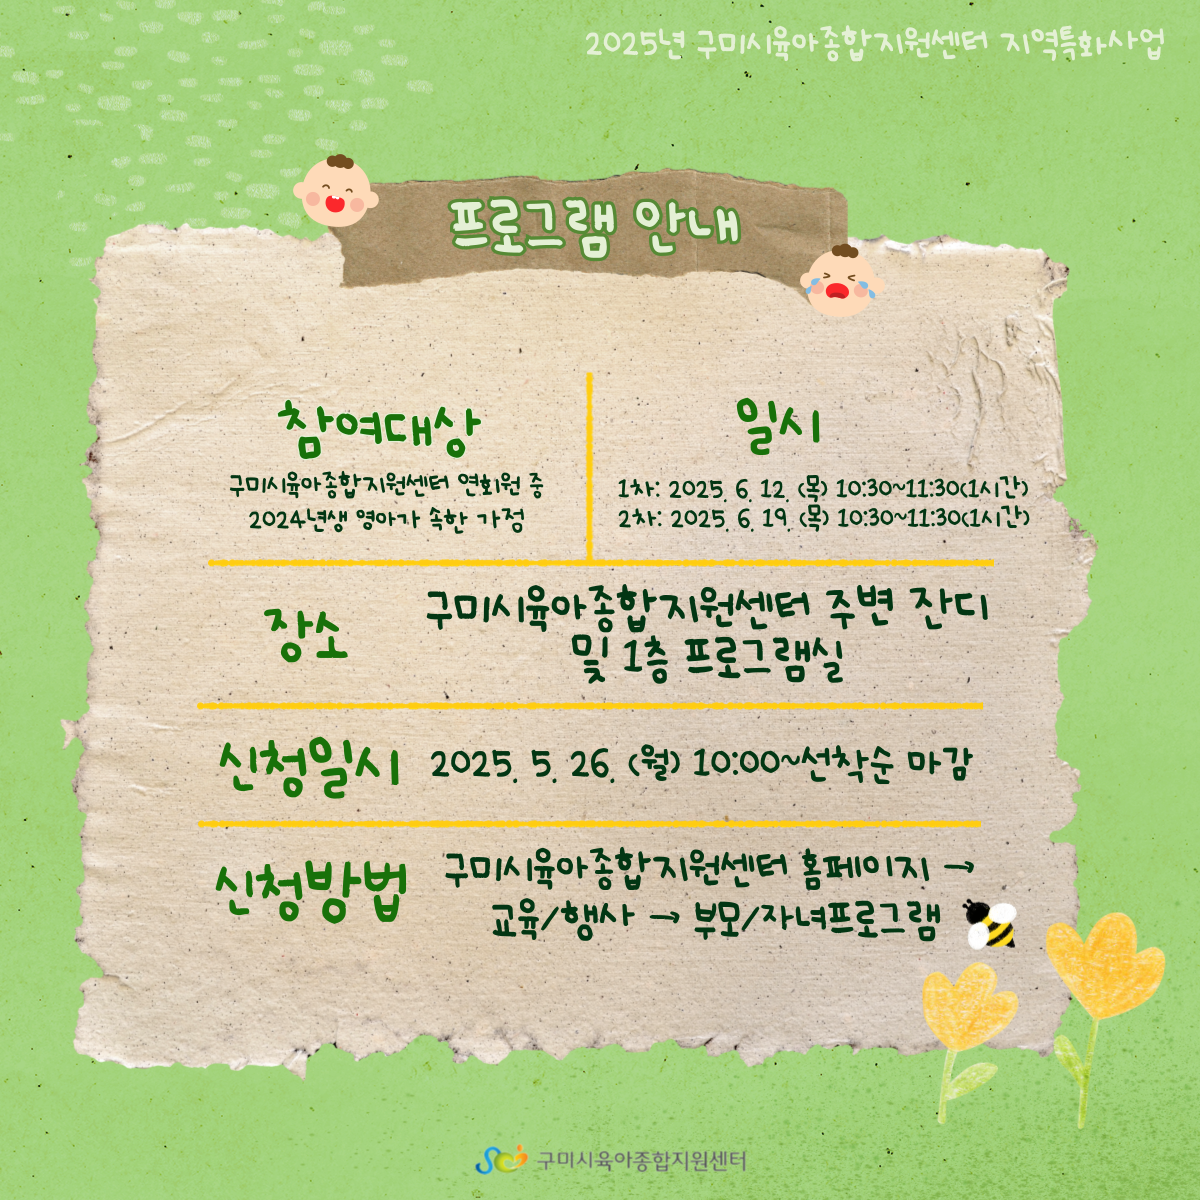 2025년 구미시육아종합지원센터 지역특화사업
프로그램 안내
참여대상
구미시육아종합지원센터 연회원 중
2024년생 영아가 속한 가정
일시
1차: 2025. 6. 12. (목) 10:30~11:30(1시간)
2차: 2025. 6. 19. (목) 10:30~11:30(1시간)
장소
구미시육아종합지원센터 주변 잔디
및 1층 프로그램실
신청일시
2025. 5. 26. (월) 10:00~선착순 마감
신청방법
구미시육아종합지원센터 홈페이지 →
교육/행사 → 부모/자녀프로그램
구미시육아종합지원센터